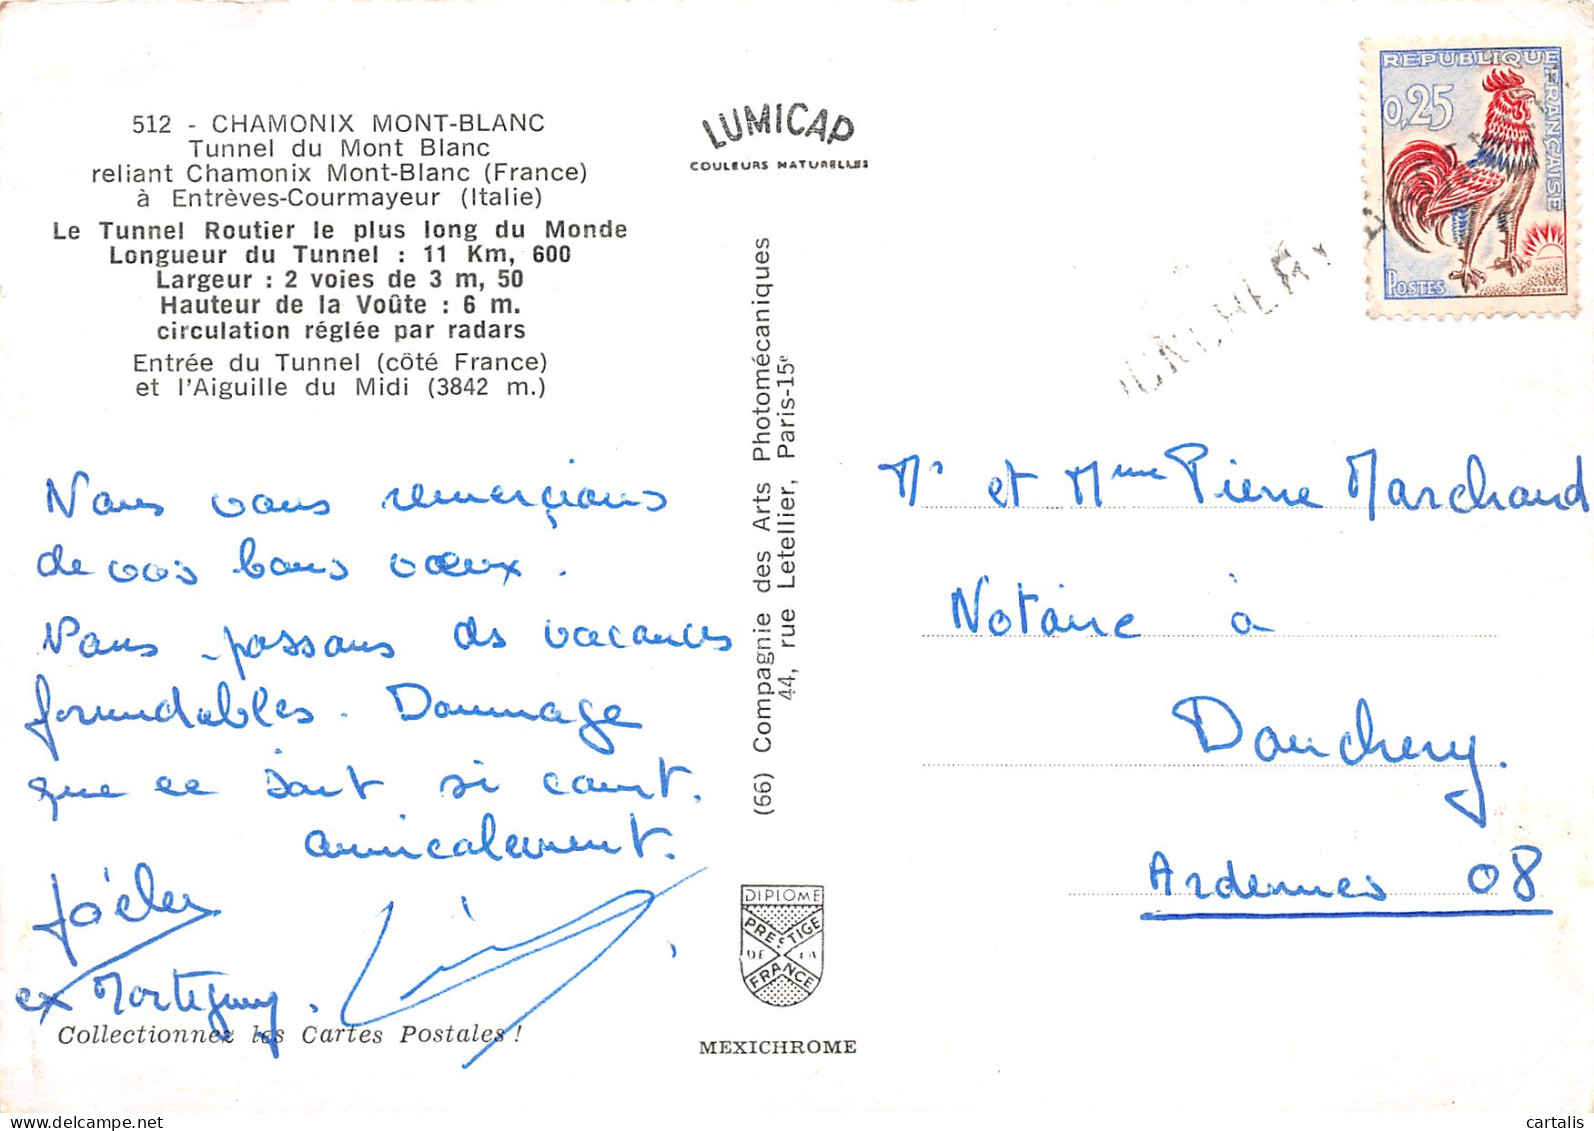 512 - CHAMONIX MONT-BLANC
Tunnel du Mont Blanc
reliant Chamonix Mont-Blanc (France)
à Entrèves-Courmayeur (Italie)
Le Tunnel Routier le plus long du Monde
Longueur du Tunnel : 11 Km, 600
Largeur : 2 voies de 3 m, 50
Hauteur de la Voûte : 6 m.
circulation réglée par radars
Entrée du Tunnel (côté France)
et l'Aiguille du Midi (3842 m.)
Nous vous remercions
de vos bons vœux.
Nous passons des vacances
formidables. Dommage
que ce soit si court.
amicalement.
ex
Collectionnez les Cartes Postales !
LUMICAP
COULEURS NATURELLES
(66) Compagnie des Arts Photomécaniques
44, rue Letellier, Paris-15e
DIPLOME
PRESTIGE
DE LA
FRANCE
MEXICHROME
REPUBLIQUE FRANÇAISE
0,25
POSTES
DECARIS
Mr et Mme Pierre Marchand
Notaire à
Donchery.
Ardennes 08
cartalis